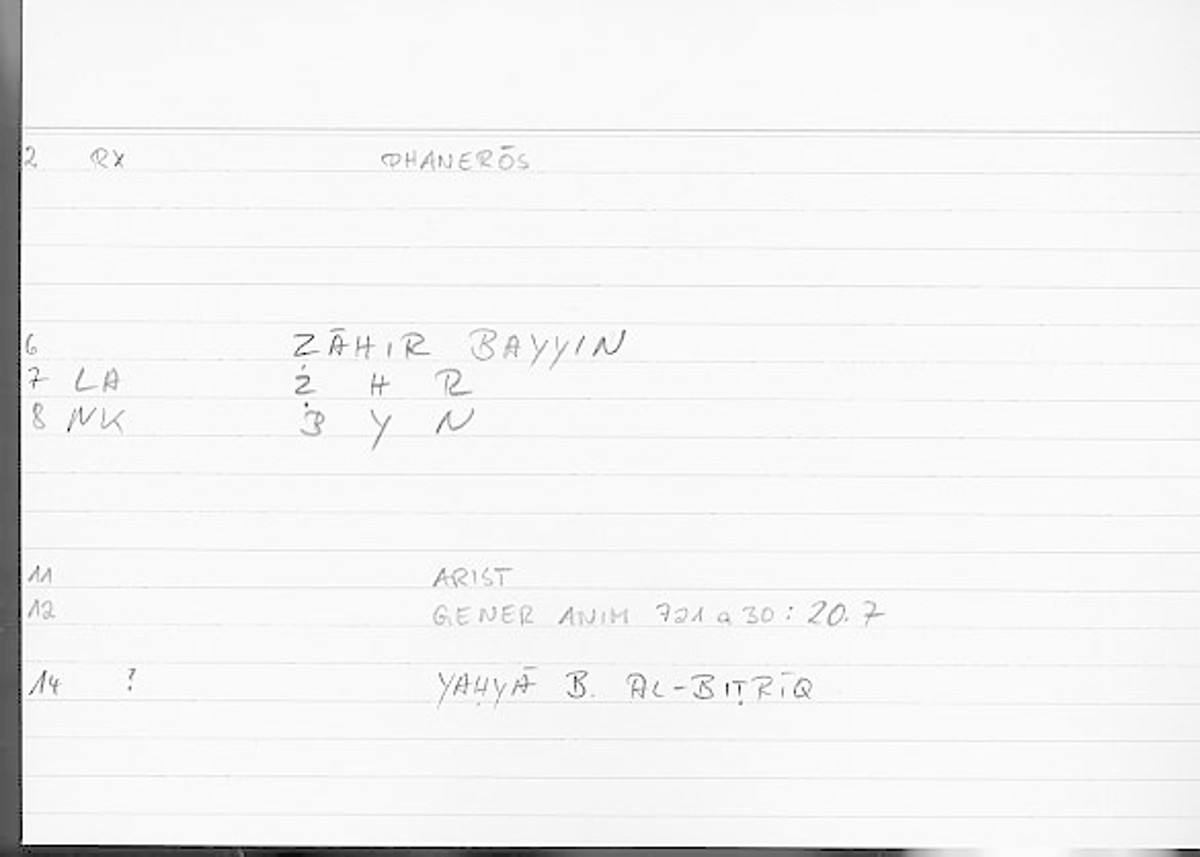 2 RX PHANERŌS
6 ẒĀHIR BAYYIN
7 LA Ẓ H R
8 NK B Y N
11 ARIST
12 GENER ANIM 721 a 30 : 20.7
14 ? YAḤYĀ B. AL-BIṬRĪQ